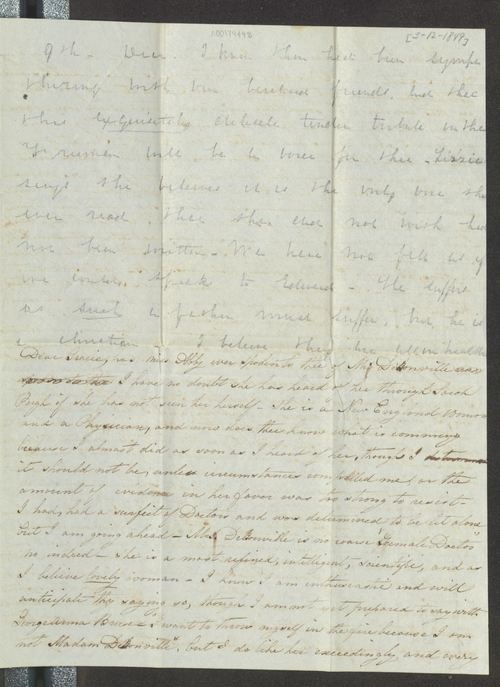 [5-12-1848]
9th - Dear. I knew thou had been sympa
thizing with our bereaved friends, and that
this exquisitely delicate tender tribute in the
will be a voice for thee - Lizzie
says she believes it is the only one she
ever read that she did not wish had
not been written - We have not felt as if
we could speak to Edward - He suffers
as such a father must suffer, but he is
a christian I believe
Dear Gracie, has Miss Abby ever spoken to thee of Mrs Delonville
I have no doubt she has heard of her through Sarah
Pugh if she has not seen her herself - She is a New England Woman
and a Physician, and now does thee know what is comming
because I almost did as soon as I heard of her, though I determined
it should not be, unless circumstances compelled me, or the
amount of evidence in her favor was too strong to resist -
I had, had a surfeit of Doctors and was determined to be let alone
but I am going ahead - Mrs Delonville is no coarse "female Doctor"
no indeed - she is a most refined, intelligent, scientific, and as
I believe lovely woman - I know I am enthusiastic and will
anticipate thy saying so, though I am not yet prepared to say with
I want to throw myself in the fire because I am
not Madam Delonville", but I do like her exceedingly and every